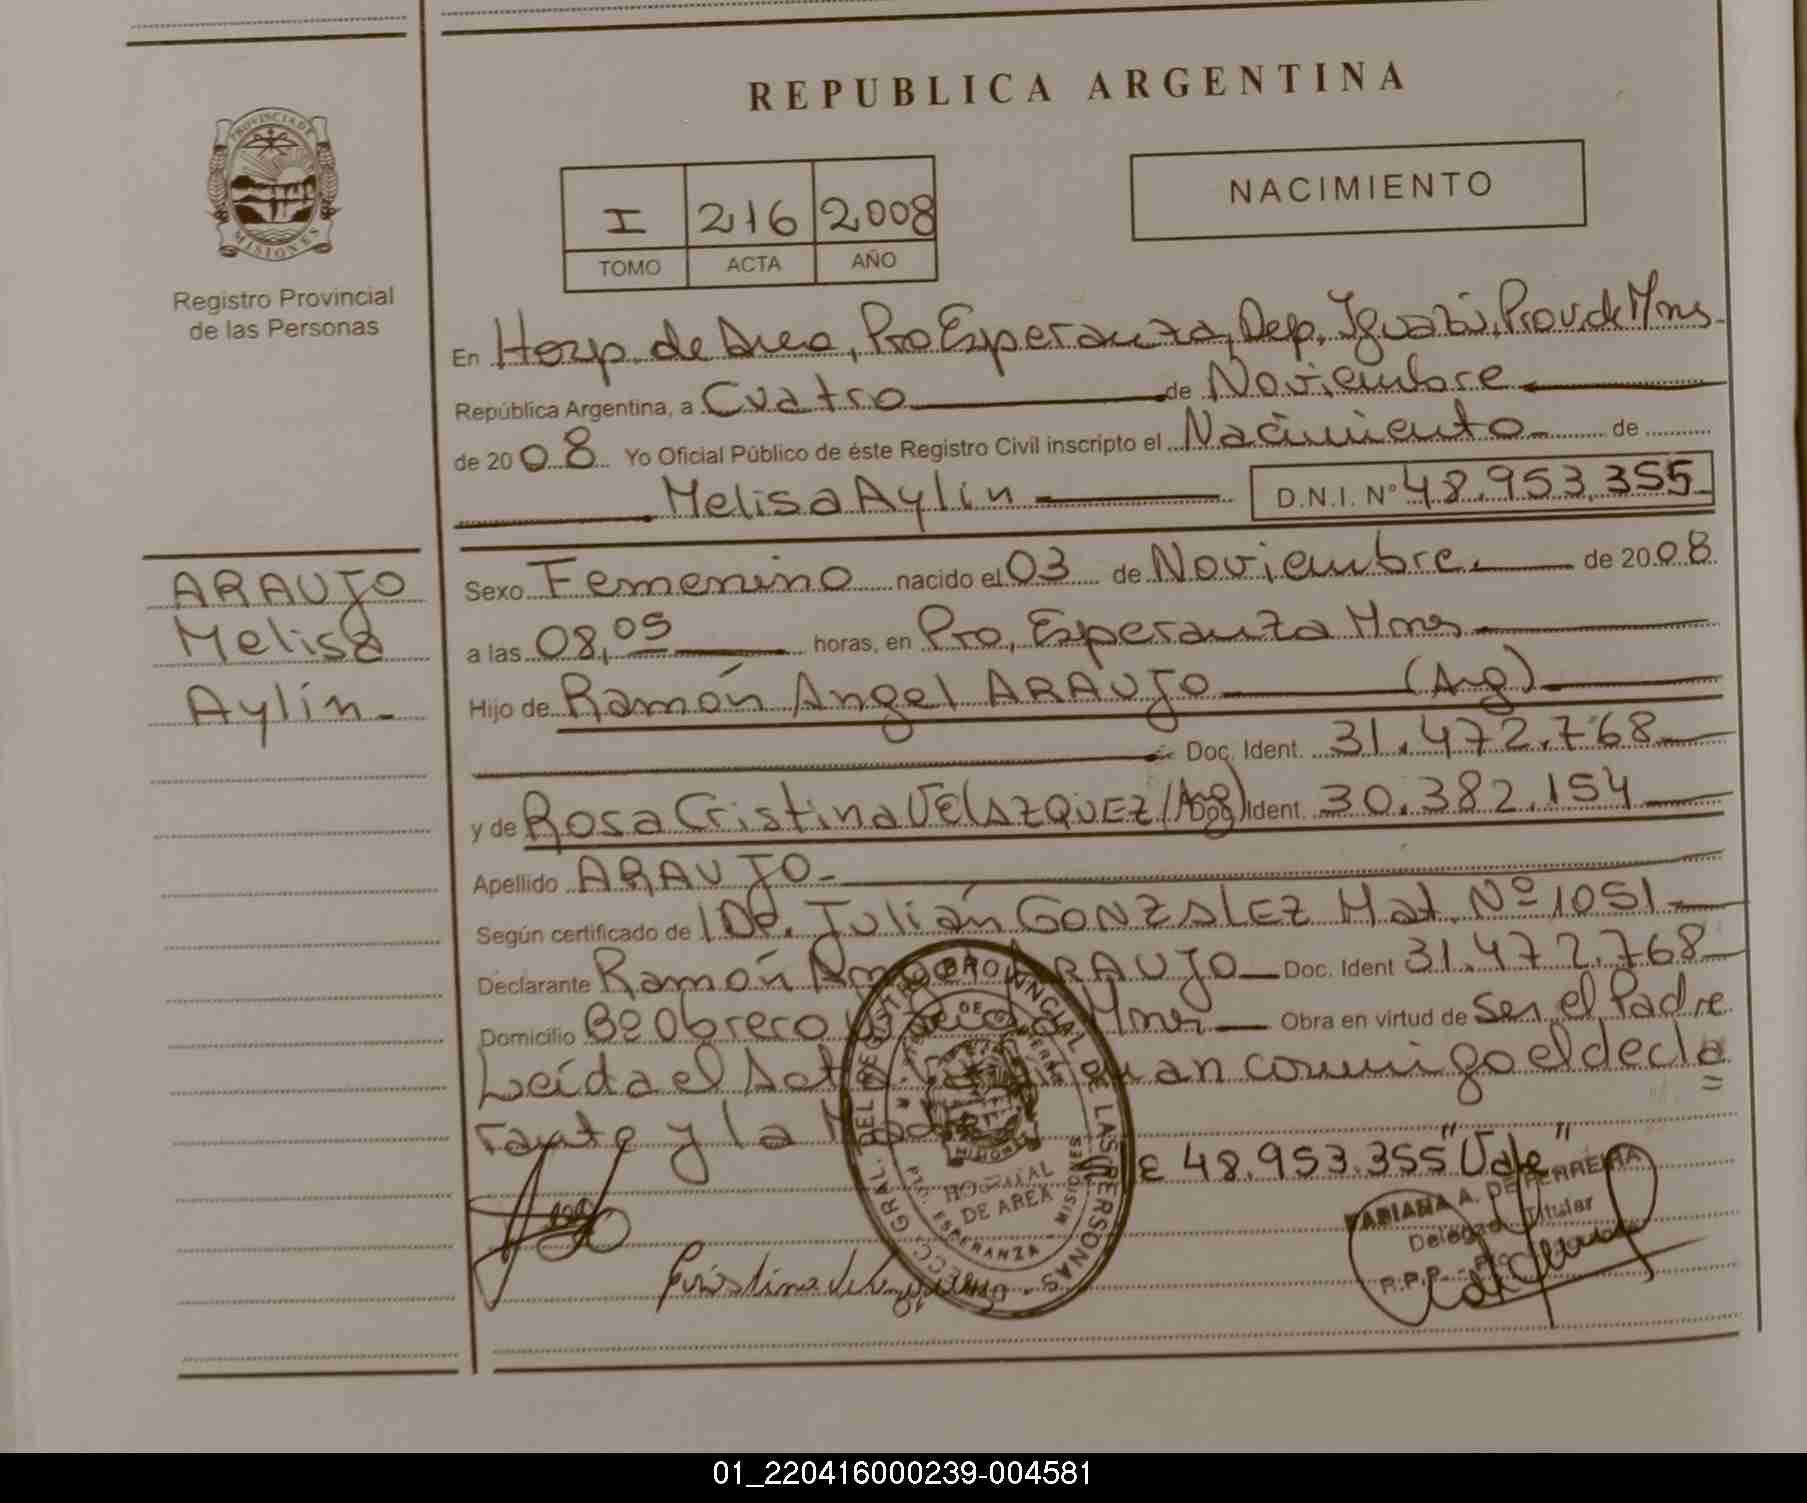 REPUBLICA ARGENTINA
PROVINCIA DE
MISIONES
Registro Provincial
de las Personas
I 216 2008
TOMO ACTA AÑO
NACIMIENTO
En Hosp. de Area, Pto Esperanza, Dep. Iguazú, Prov. de Mnes.
República Argentina, a Cuatro de Noviembre
de 2008 Yo Oficial Público de éste Registro Civil inscripto el Nacimiento de
Melisa Aylín D.N.I. Nº 48.953.355
ARAUJO
Melisa
Aylín
Sexo Femenino nacido el 03 de Noviembre de 2008
a las 08,05 horas, en Pto, Esperanza Mnes
Hijo de Ramón Angel ARAUJO (Arg)
Doc. Ident. 31.472.768
y de Rosa Cristina VELAZQUEZ (Arg) Doc. Ident. 30.382.154
Apellido ARAUJO
Según certificado de Dr. Julián GONZALEZ Mat. Nº 1051
Declarante Ramón Angel ARAUJO Doc. Ident 31.472.768
Domicilio Bº Obrero Mnes Obra en virtud de ser el Padre
Leída el Acta conmigo el decla
rante y la Madre
48.953.355 "Vale"
DIRECC. GRAL. DEL REGISTRO PROVINCIAL DE LAS PERSONAS
MISIONES
HOSPITAL
DE AREA
PTO. ESPERANZA - MISIONES
FABIANA A. DE FERREIRA
Delegada Titular
R.P.P.
01_220416000239-004581